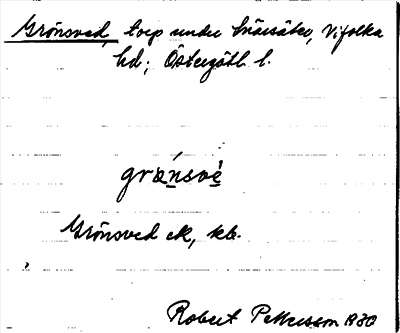 Grönsved, torp under Bräisäter, Vifolka
hd; Östergötl. l.
grǽnsvè
Grönsved ek, kb.
Robert Pettersson 1880